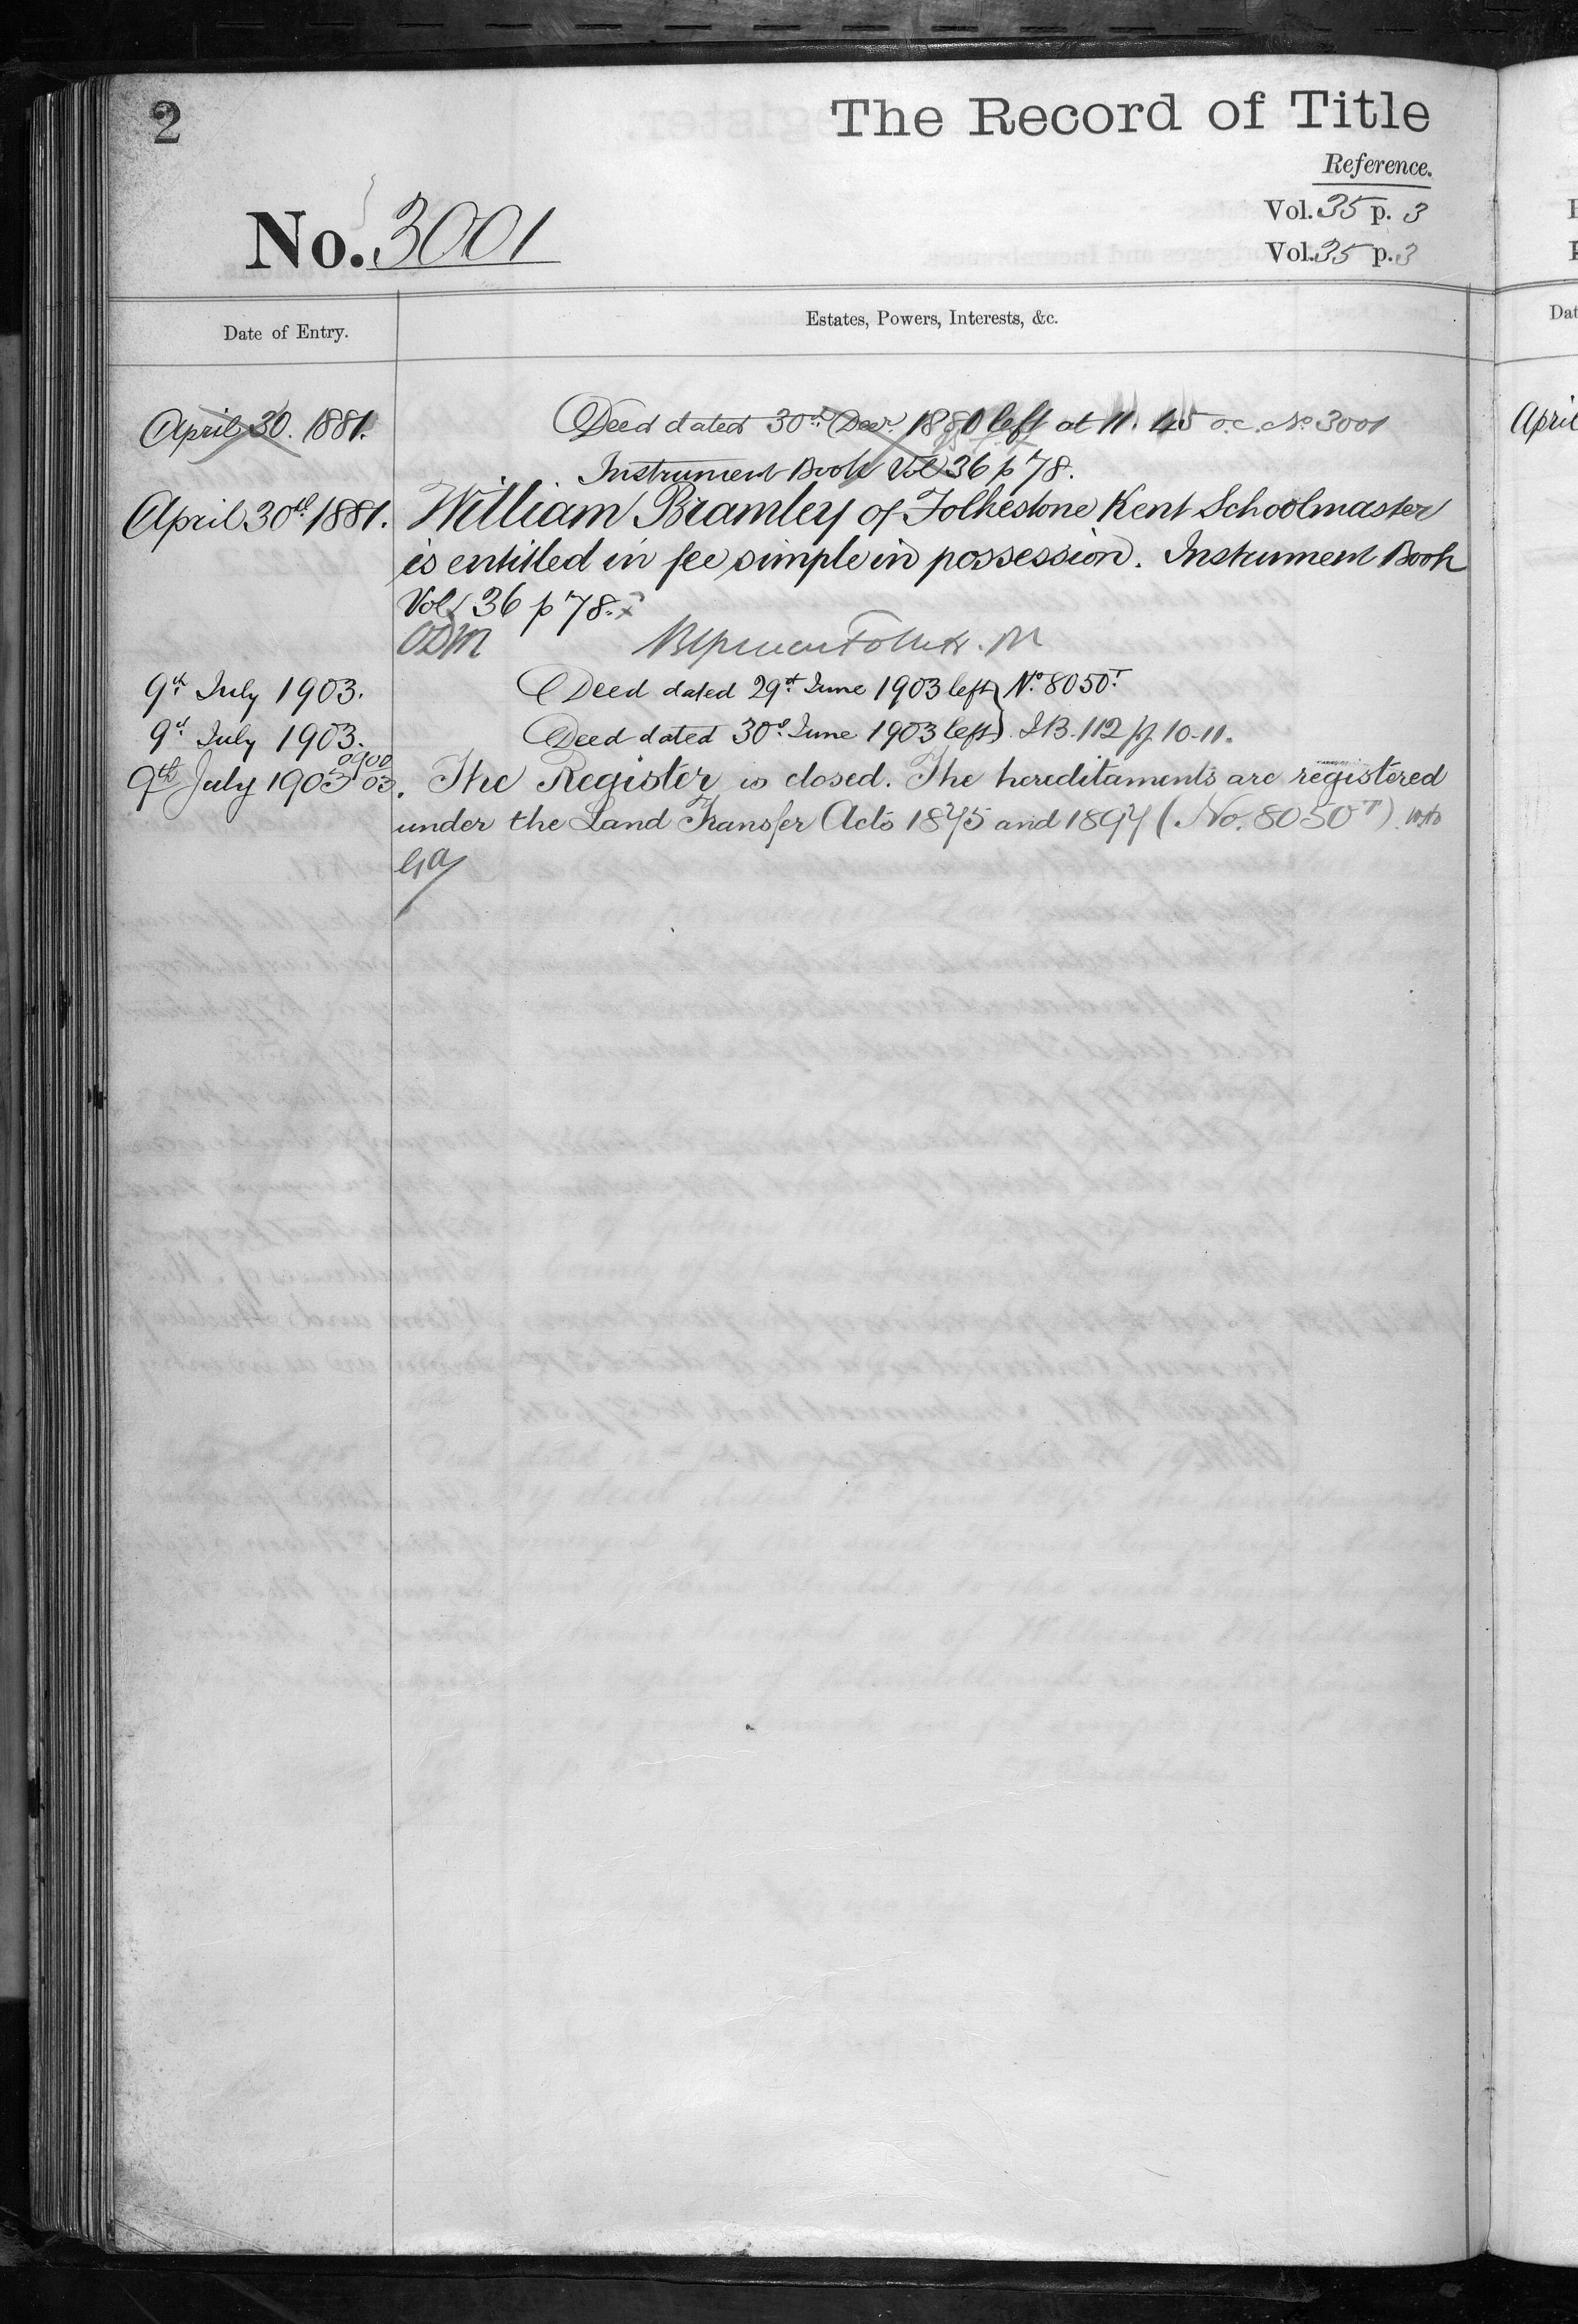 2
The Record of Title
Reference.
Vol. 35 p. 3
No. 3001
Vol. 35 p. 3
Date of Entry.
Estates, Powers, Interests, &c.
April 30. 1881. Deed dated 30th Decr. 1880 left at 11.45 o.c. No 3001
Instrument Book Vol 36 p 78.
April 30th 1881. William Bramley of Folkestone Kent Schoolmaster
is entitled in fee simple in possession. Instrument Book
Vol 36 p 78.
ODM
9th July 1903. Deed dated 29th June 1903 left } No. 8050T
9th July 1903. Deed dated 30th June 1903 left } I.B. 112 pp 10-11.
9th July 1903. The Register is closed. The hereditaments are registered
under the Land Transfer Acts 1875 and 1897 (No. 8050T).
Dat
April